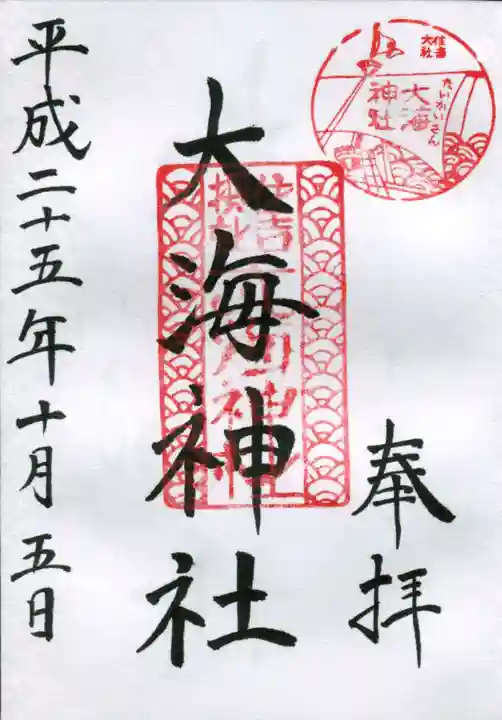 奉拝
大海神社
平成二十五年十月五日
住吉
大社
たいかいさん
大海
神社
住吉
摂社